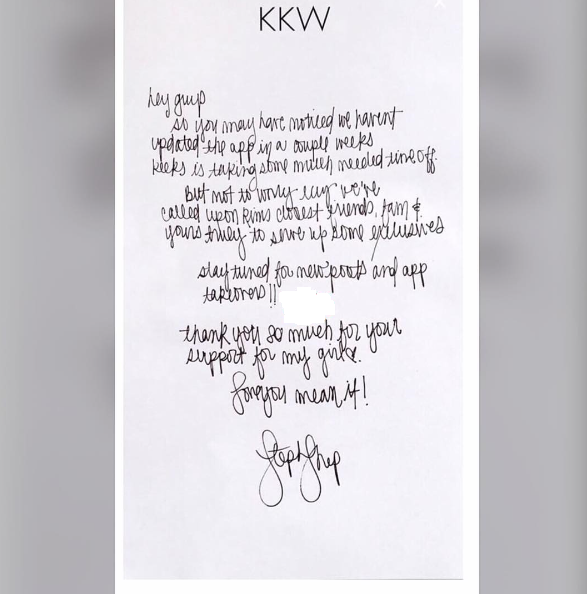 KKW
hey guyp
so you may have noticed we havent
updated the app in a couple weeks
keeks is taking some much needed time off.
But not to worry cuz we've
called upon kims closest friends, fam &
yours truly to serve up some exclusives
stay tuned for new posts and app
takeovers!!
thank you so much for your
support for my girl
foryou mean it!
Steph Shep